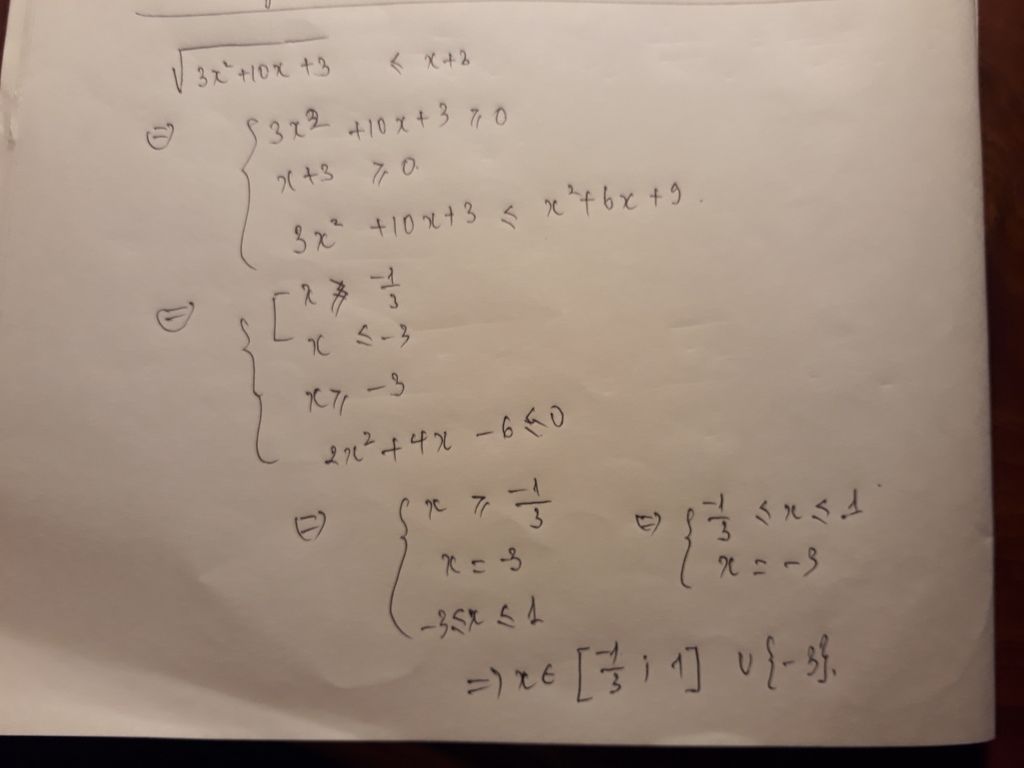 √(3x²+10x+3) ≤ x+3
⇔ { 3x² +10x+3 ≥ 0
x+3 ≥ 0.
3x² +10x+3 ≤ x²+6x+9.
⇔ { [ x ≥ -1/3
x ≤ -3
x ≥ -3
2x²+4x-6 ≤ 0
⇔ { x ≥ -1/3 ⇔ { -1/3 ≤ x ≤ 1
x = -3 x = -3
-3 ≤ x ≤ 1
⇒ x ∈ [-1/3 ; 1] ∪ {-3}.